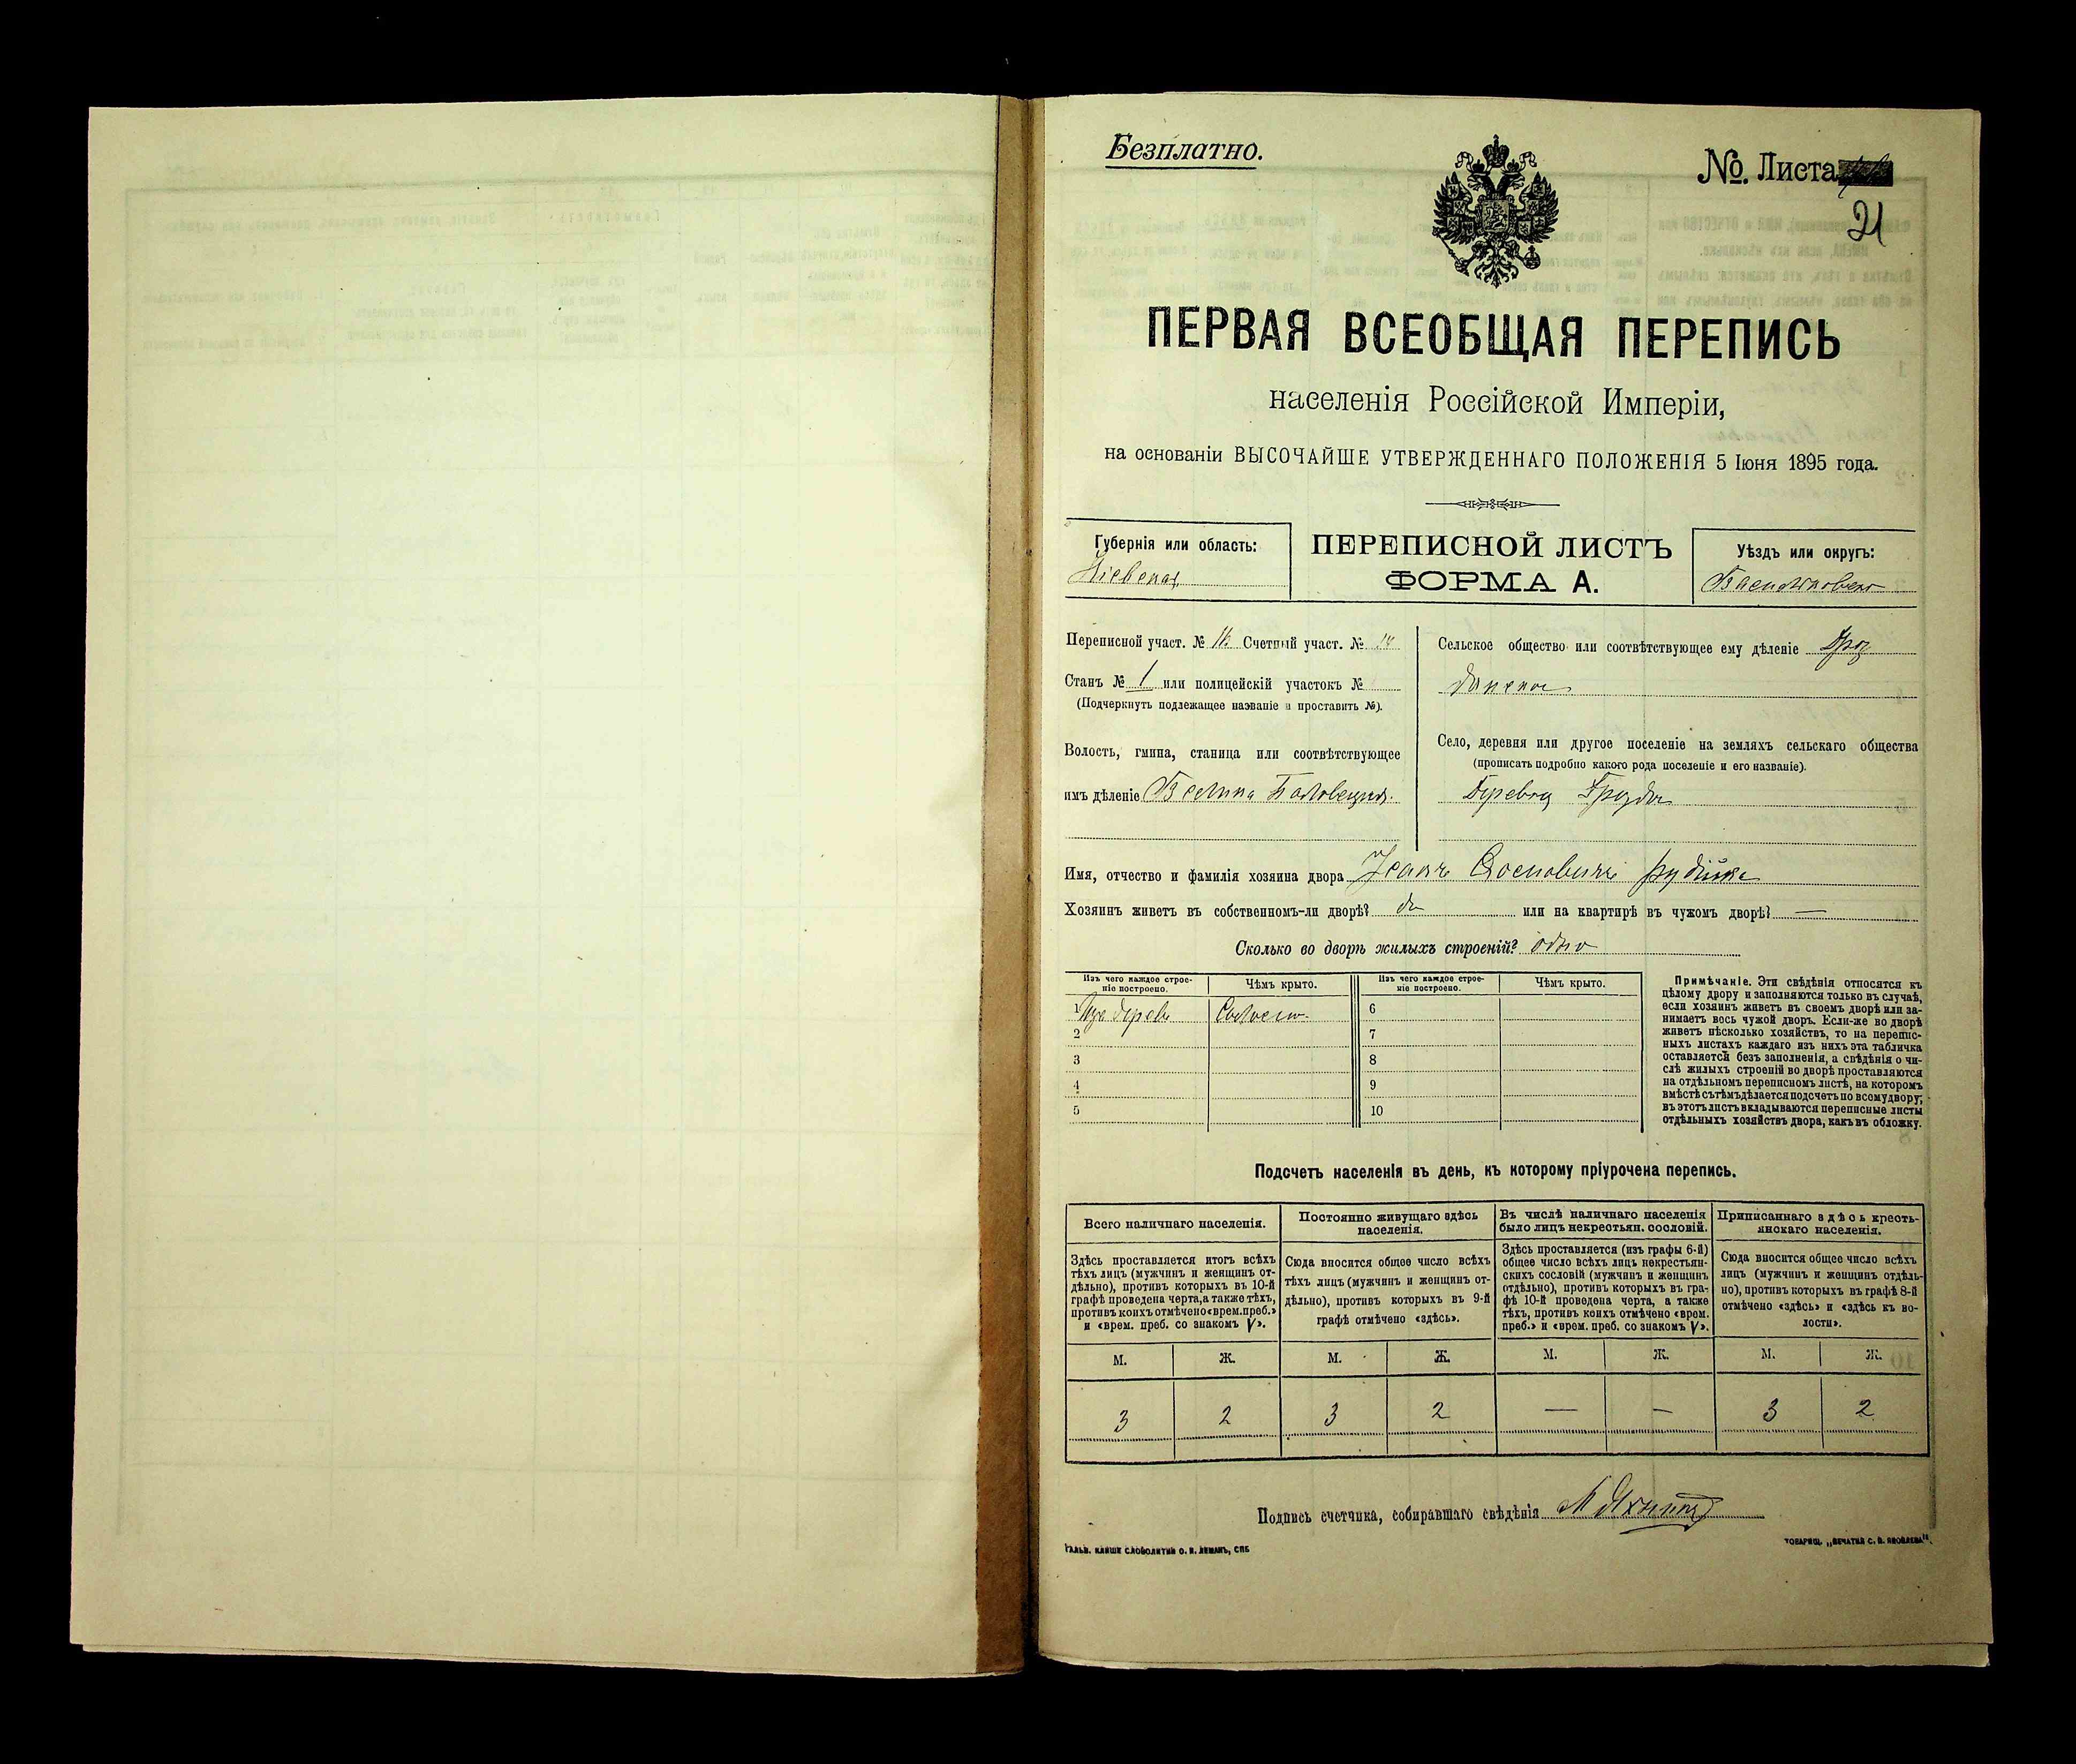 Безплатно.
№. Листа
21
ПЕРВАЯ ВСЕОБЩАЯ ПЕРЕПИСЬ
населенія Россійской Имперіи,
на основаніи ВЫСОЧАЙШЕ УТВЕРЖДЕННАГО ПОЛОЖЕНІЯ 5 Іюня 1895 года.
Губернія или область:
Кіевская
ПЕРЕПИСНОЙ ЛИСТЪ
ФОРМА А.
Уѣздъ или округъ:
Переписной участ. № Счетный участ. № 14
Станъ № 1 или полицейскій участокъ №
(Подчеркнуть подлежащее названіе и проставить №).
Волость, гмина, станица или соотвѣтствующее
имъ дѣленіе Велика Половецкая
Сельское общество или соотвѣтствующее ему дѣленіе Дроз
данское
Село, деревня или другое поселеніе на земляхъ сельскаго общества
(прописать подробно какого рода поселеніе и его названіе).
Имя, отчество и фамилія хозяина двора
Хозяинъ живетъ въ собственномъ-ли дворѣ? да или на квартирѣ въ чужомъ дворѣ? —
Сколько во дворѣ жилыхъ строеній? одно
Изъ чего каждое строе-
ніе построено.
Чѣмъ крыто.
Изъ чего каждое строе-
ніе построено.
Чѣмъ крыто.
1 Изъ дерева Соломою 6
2 7
3 8
4 9
5 10
Примѣчаніе. Эти свѣдѣнія относятся къ
цѣлому двору и заполняются только въ случаѣ,
если хозяинъ живетъ въ своемъ дворѣ или за-
нимаетъ весь чужой дворъ. Если-же во дворѣ
живетъ нѣсколько хозяйствъ, то на перепис-
ныхъ листахъ каждаго изъ нихъ эта табличка
оставляется безъ заполненія, а свѣдѣнія о чи-
слѣ жилыхъ строеній во дворѣ проставляются
на отдѣльномъ переписномъ листѣ, на которомъ
вмѣстѣ съ тѣмъ дѣлается подсчетъ по всему двору;
въ этотъ листъ вкладываются переписные листы
отдѣльныхъ хозяйствъ двора, какъ въ обложку.
Подсчетъ населенія въ день, къ которому пріурочена перепись.
Всего наличнаго населенія.
Здѣсь проставляется итогъ всѣхъ
тѣхъ лицъ (мужчинъ и женщинъ от-
дѣльно), противъ которыхъ въ 10-й
графѣ проведена черта, а также тѣхъ,
противъ коихъ отмѣчено «врем. преб.»
и «врем. преб. со знакомъ V».
Постоянно живущаго здѣсь
населенія.
Сюда вносится общее число всѣхъ
тѣхъ лицъ (мужчинъ и женщинъ от-
дѣльно), противъ которыхъ въ 9-й
графѣ отмѣчено «здѣсь».
Въ числѣ наличнаго населенія
было лицъ некрестьян. сословій.
Здѣсь проставляется (изъ графы 6-й)
общее число всѣхъ лицъ некрестьян-
скихъ сословій (мужчинъ и женщинъ
отдѣльно), противъ которыхъ въ гра-
фѣ 10-й проведена черта, а также
тѣхъ, противъ коихъ отмѣчено «врем.
преб.» и «врем. преб. со знакомъ V».
Приписаннаго здѣсь кресть-
янскаго населенія.
Сюда вносится общее число всѣхъ
лицъ (мужчинъ и женщинъ отдѣль-
но), противъ которыхъ въ графѣ 8-й
отмѣчено «здѣсь» и «здѣсь къ во-
лости».
М. Ж. М. Ж. М. Ж. М. Ж.
3 2 3 2 — — 3 2
Подпись счетчика, собиравшаго свѣдѣнія
ГАЛЬВ. КЛИШЕ СЛОВОЛИТНИ О. И. ЛЕМАНЪ, СПБ.
ТОВАРИЩ. „ПЕЧАТНЯ С. П. ЯКОВЛЕВА".